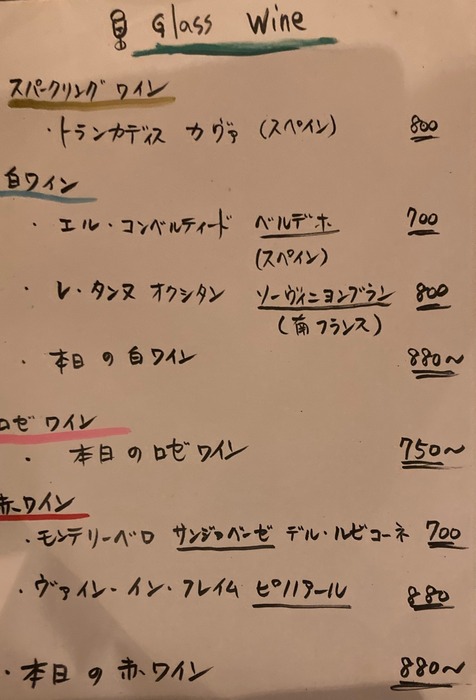 Glass Wine
スパークリング ワイン
・トランカディス カヴァ (スペイン) 800
白ワイン
・エル・コンベルティード ベルデホ 700
(スペイン)
・レ・タンヌ オクシタン ソーヴィニヨンブラン 800
(南フランス)
・本日の白ワイン 880〜
ロゼワイン
・本日のロゼワイン 750〜
赤ワイン
・モンテリーベロ サンジョベーゼ デル・ルビコーネ 700
・ヴァイン・イン・フレイム ピノノアール 880
・本日の赤ワイン 880〜